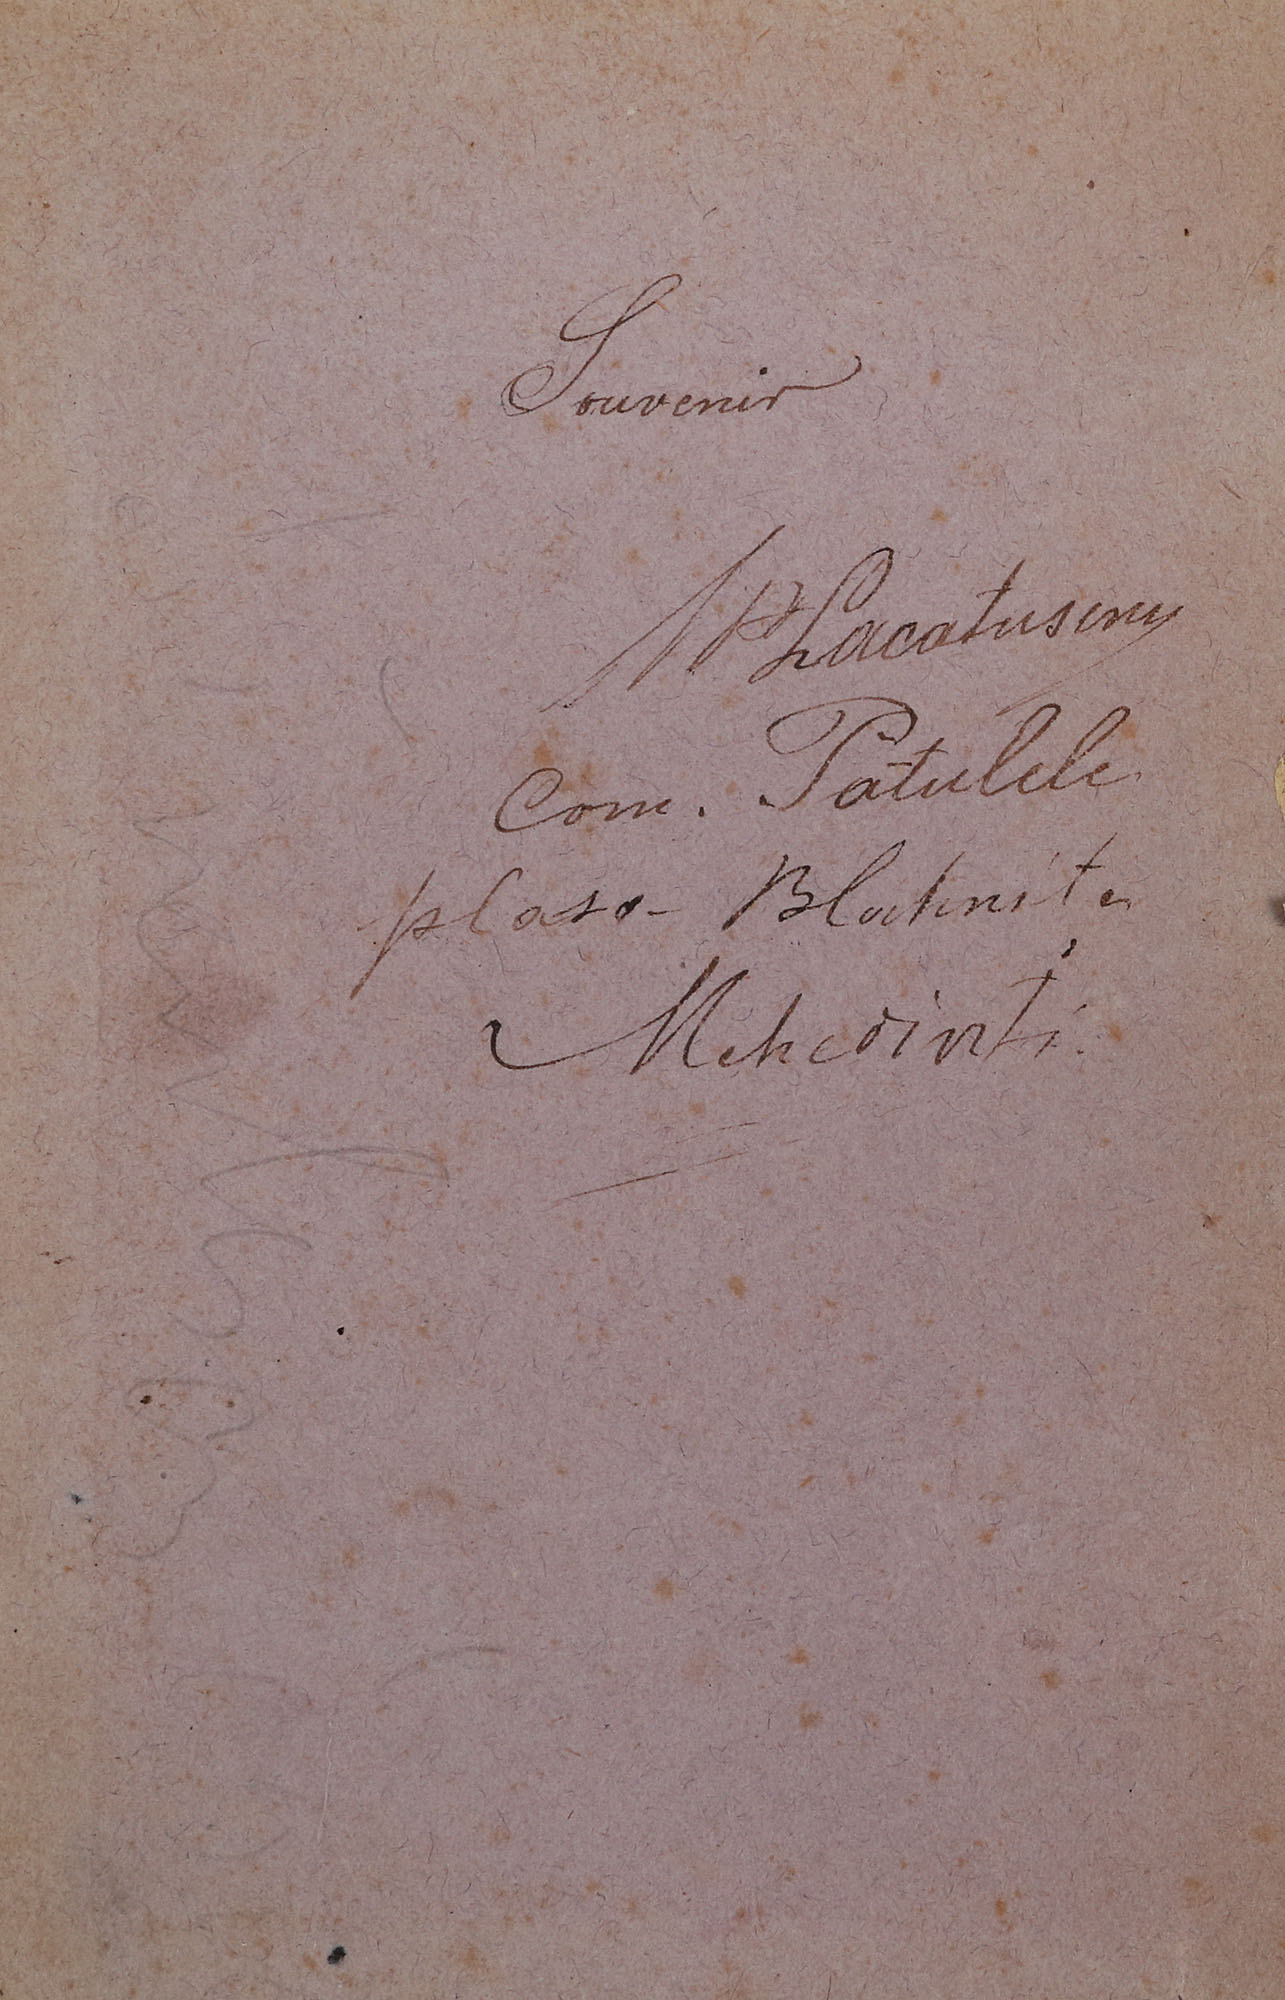 Souvenir
NP Lacatusenu
Com. Patulele
plasa Blahnita
Mehedinti